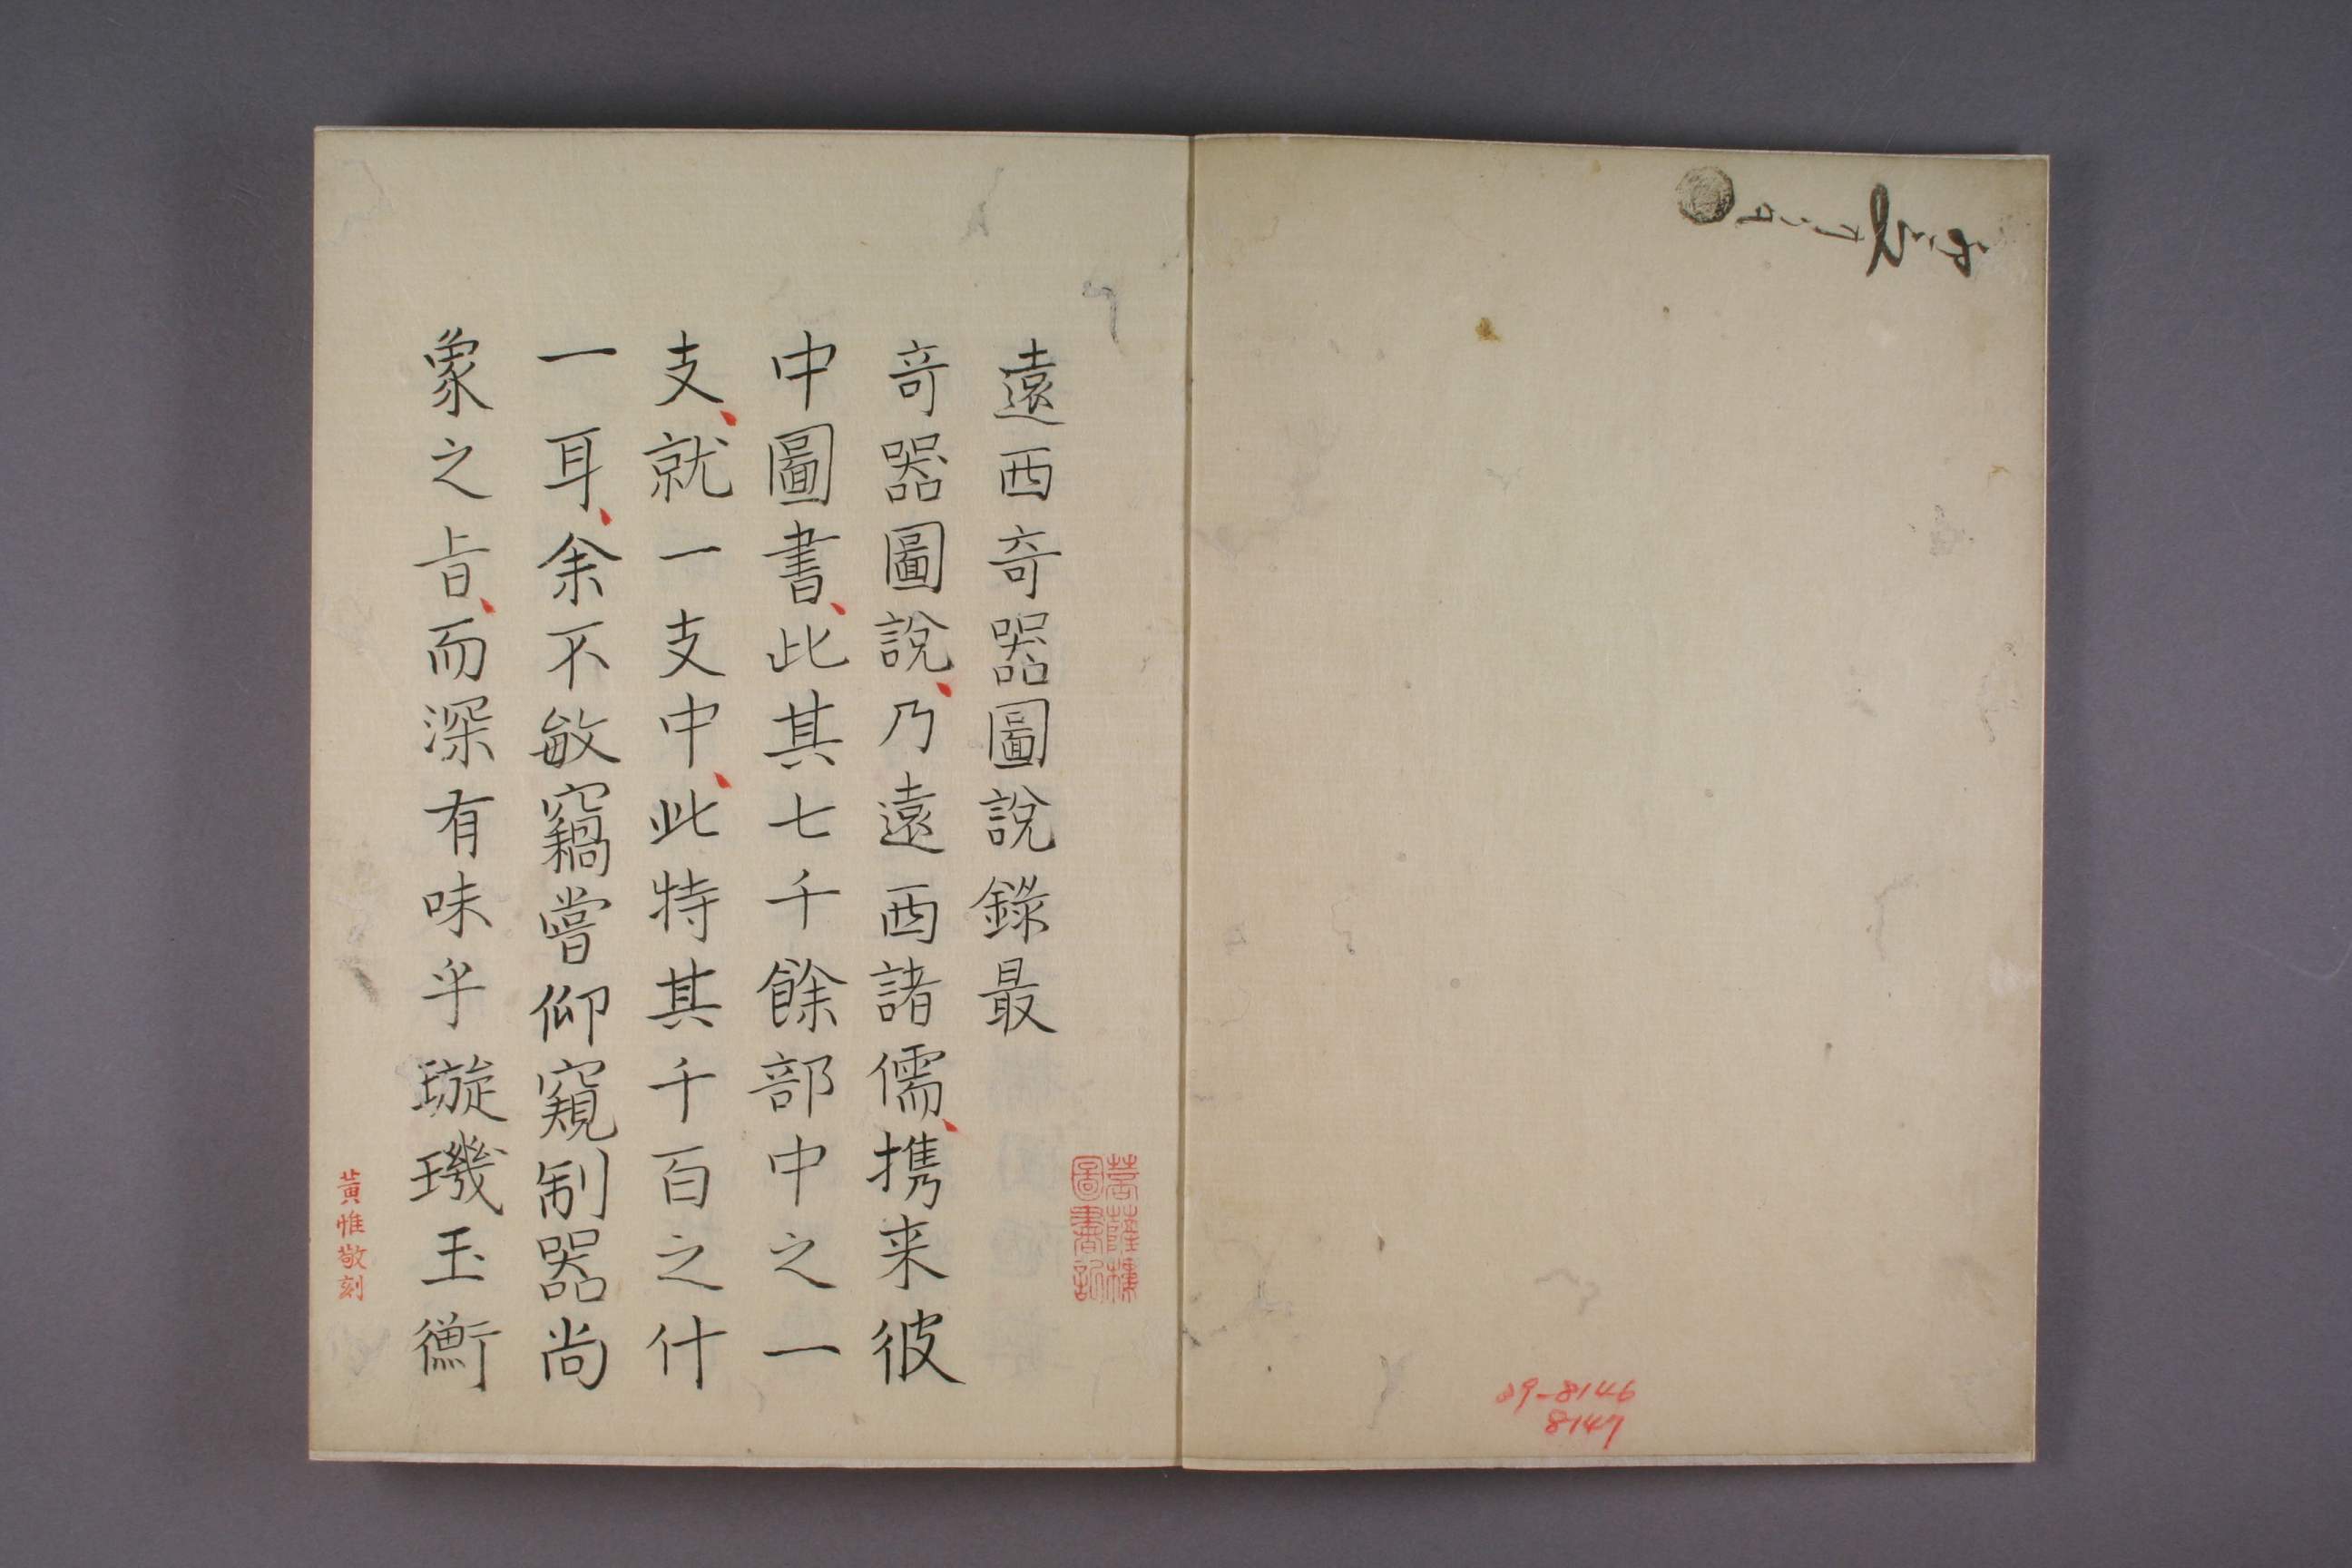 29-8146
8147
遠西奇噐圖說錄最
竒噐圖說、乃遠西諸儒、携来彼
中圖書、此其七千餘部中之一
支、就一支中、此特其千百之什
一耳、余不敏竊嘗仰窺制噐尚
象之㫖、而深有味乎璇璣玉衡
菩薩樓
圖書記
黃惟敬刻